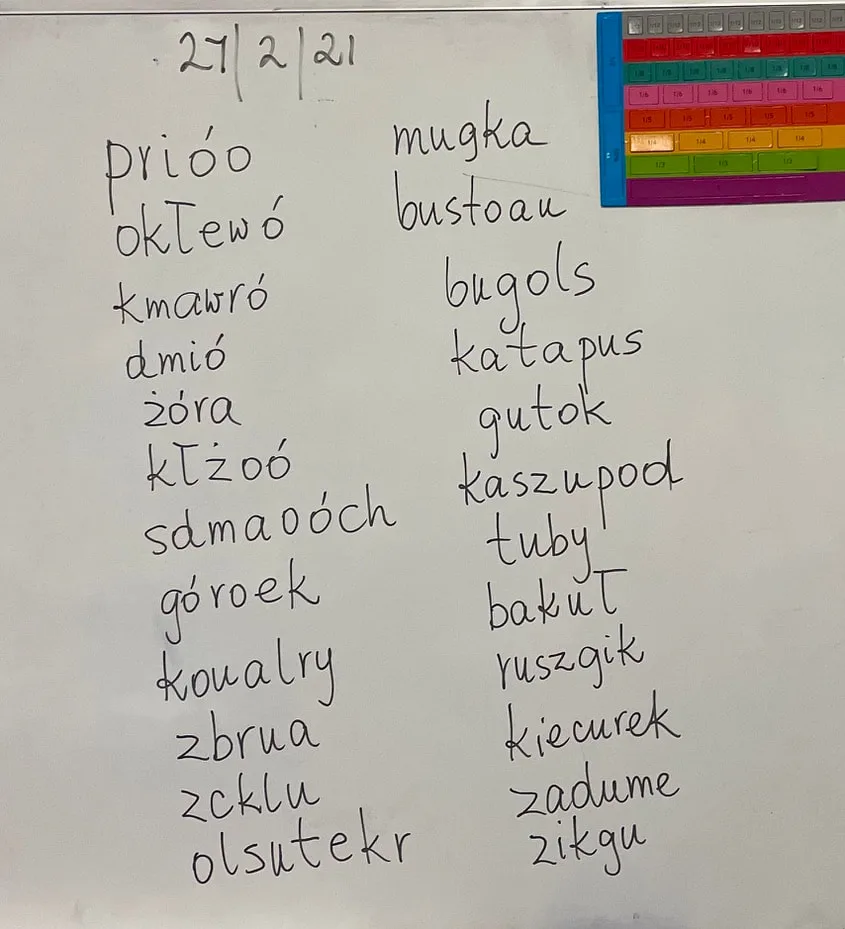 27/2/21
prióo
okłewó
kmawró
dmió
żóra
kłżoó
sdmaoóch
góroek
koualry
zbrua
zcklu
olsutekr
mugka
bustoau
bugols
katapus
gutok
kaszupod
tuby
bakuł
ruszgik
kiecurek
zadume
zikgu
1/6 1/6 1/6 1/6 1/6 1/6
1/5 1/5 1/5 1/5 1/5
1/4 1/4 1/4 1/4
1/3 1/3 1/3